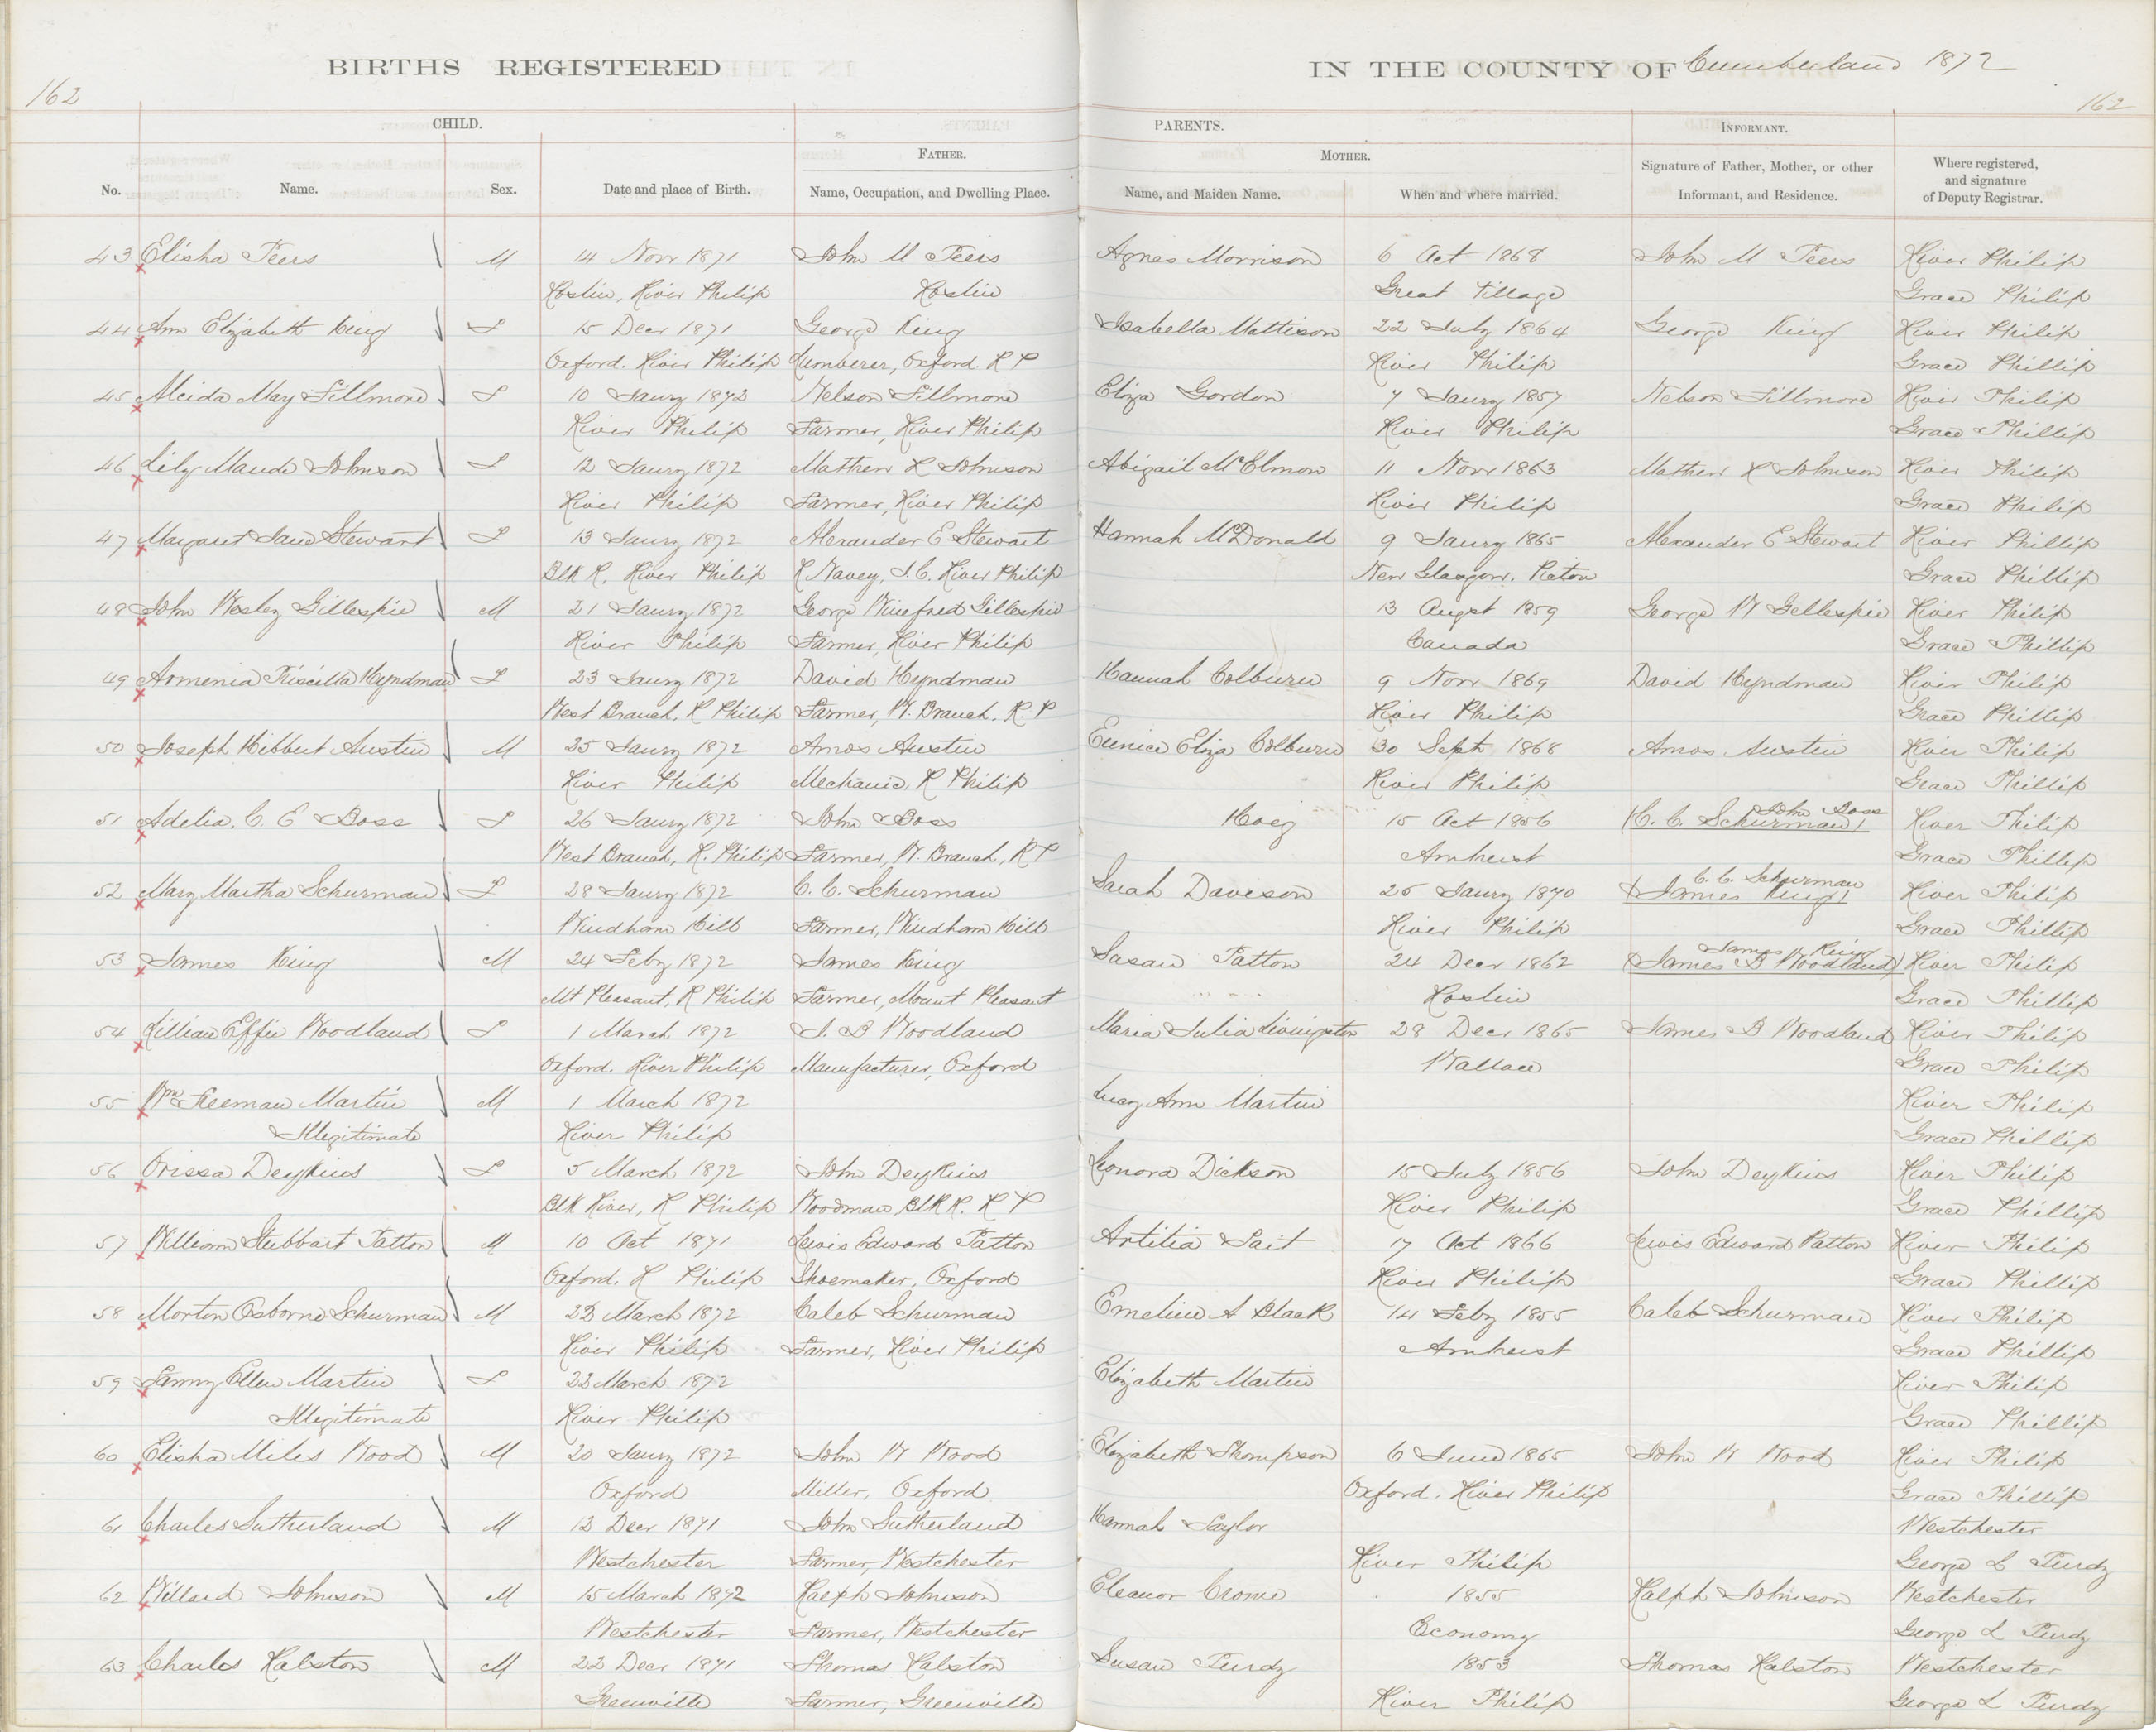 BIRTHS REGISTERED IN THE COUNTY OF Cumberland 1872
162 162
CHILD. PARENTS. INFORMANT.
FATHER. MOTHER.
No. Name. Sex. Date and place of Birth. Name, Occupation, and Dwelling Place. Name, and Maiden Name. When and where married. Signature of Father, Mother, or other Informant, and Residence. Where registered, and signature of Deputy Registrar.
43 Elisha Peers M 14 Novr 1871 John M Peers Agnes Morrison 6 Oct 1868 John M Peers River Philip
Roslin, River Philip Roslin Great Village Grace Philip
44 Ann Elizabeth King F 15 Decr 1871 George King Isabella Mattison 22 July 1864 George King River Philip
Oxford. River Philip Lumberer, Oxford. R P River Philip Grace Phillip
45 Alcida May Fillmore F 10 Jaury 1872 Nelson Fillmore Eliza Gordon 7 Jaury 1857 Nelson Fillmore River Philip
River Philip Farmer, River Philip River Philip Grace Phillip
46 Lily Maude Johnson F 12 Jaury 1872 Mathew R Johnson Abigail McElmon 11 Novr 1863 Mathew R Johnson River Philip
River Philip Farmer, River Philip River Philip Grace Philip
47 Margaret Jane Stewart F 13 Jaury 1872 Alexander E Stewart Hannah McDonald 9 Jaury 1865 Alexander E Stewart River Phillip
Blk R. River Philip R Navey, I. C. River Philip New Glasgow. Pictou Grace Phillip
48 John Wesley Gillespie M 21 Jaury 1872 George Winefred Gillespie 13 Augst 1859 George W Gellespie River Philip
River Philip Farmer, River Philip Canada Grace Phillip
49 Armenia Priscilla Hyndman F 23 Jaury 1872 David Hyndman Hannah Colburn 9 Novr 1869 David Hyndman River Philip
West Branch, R Philip Farmer, W. Branch. R. P River Philip Grace Phillip
50 Joseph Hibbert Austin M 25 Jaury 1872 Amos Austin Eunice Eliza Colburn 30 Sept 1868 Amos Austin River Philip
River Philip Mechanic, R Philip River Philip Grace Phillip
51 Adelia. C. E Boss F 26 Jaury 1872 John Boss Hoeg 15 Oct 1856 (C. C. Schurman) John Boss River Philip
West Branch, R. Philip Farmer, W. Branch, R P Amherst Grace Phillip
52 Mary Martha Schurman F 28 Jaury 1872 C. C. Schurman Sarah Daveson 25 Jaury 1870 (James King) C. C. Schurman River Philip
Windham Hill Farmer, Windham Hill River Philip Grace Phillip
53 James King M 24 Feby 1872 James King Susan Patton 24 Decr 1862 (James B Woodland) James King River Philip
Mt Pleasant, R Philip Farmer, Mount Pleasant Roslin Grace Phillip
54 Lillian Effie Woodland F 1 March 1872 J. B Woodland Maria Julia Livingston 28 Decr 1865 James B Woodland River Philip
Oxford. River Philip Manufacturer, Oxford Wallace Grace Philip
55 Wm Freeman Martin M 1 March 1872 Lucy Ann Martin River Philip
Illegitimate River Philip Grace Phillip
56 Orissa Deykins F 5 March 1872 John Deykins Leonora Dickson 15 July 1856 John Deykins River Philip
Blk River, R Philip Woodman, Blk R. R P River Philip Grace Phillip
57 William Stubbart Patton M 10 Oct 1871 Lewis Edward Patton Artitia Sait 17 Oct 1866 Lewis Edward Patton River Philip
Oxford, R Philip Shoemaker, Oxford River Philip Grace Phillip
58 Morton Osborne Schurman M 23 March 1872 Caleb Schurman Emeline A Black 14 Feby 1855 Caleb Schurman River Philip
River Philip Farmer, River Philip Amherst Grace Phillip
59 Fanny Ellen Martin F 22 March 1872 Elizabeth Martin River Philip
Illegitimate River Philip Grace Phillip
60 Elisha Miles Wood M 20 Jaury 1872 John W Wood Elizabeth Thompson 6 June 1865 John W Wood River Philip
Oxford Miller, Oxford Oxford, River Philip Grace Phillip
61 Charles Sutherland M 12 Decr 1871 John Sutherland Hannah Taylor Westchester
Westchester Farmer, Westchester River Philip George L Purdy
62 Willard Johnson M 15 March 1872 Ralph Johnson Eleanor Crowe 1855 Ralph Johnson Westchester
Westchester Farmer, Westchester Economy George L Purdy
63 Charles Ralston M 22 Decr 1871 Thomas Ralston Susan Purdy 1853 Thomas Ralston Westchester
Greenville Farmer, Greenville River Philip George L Purdy